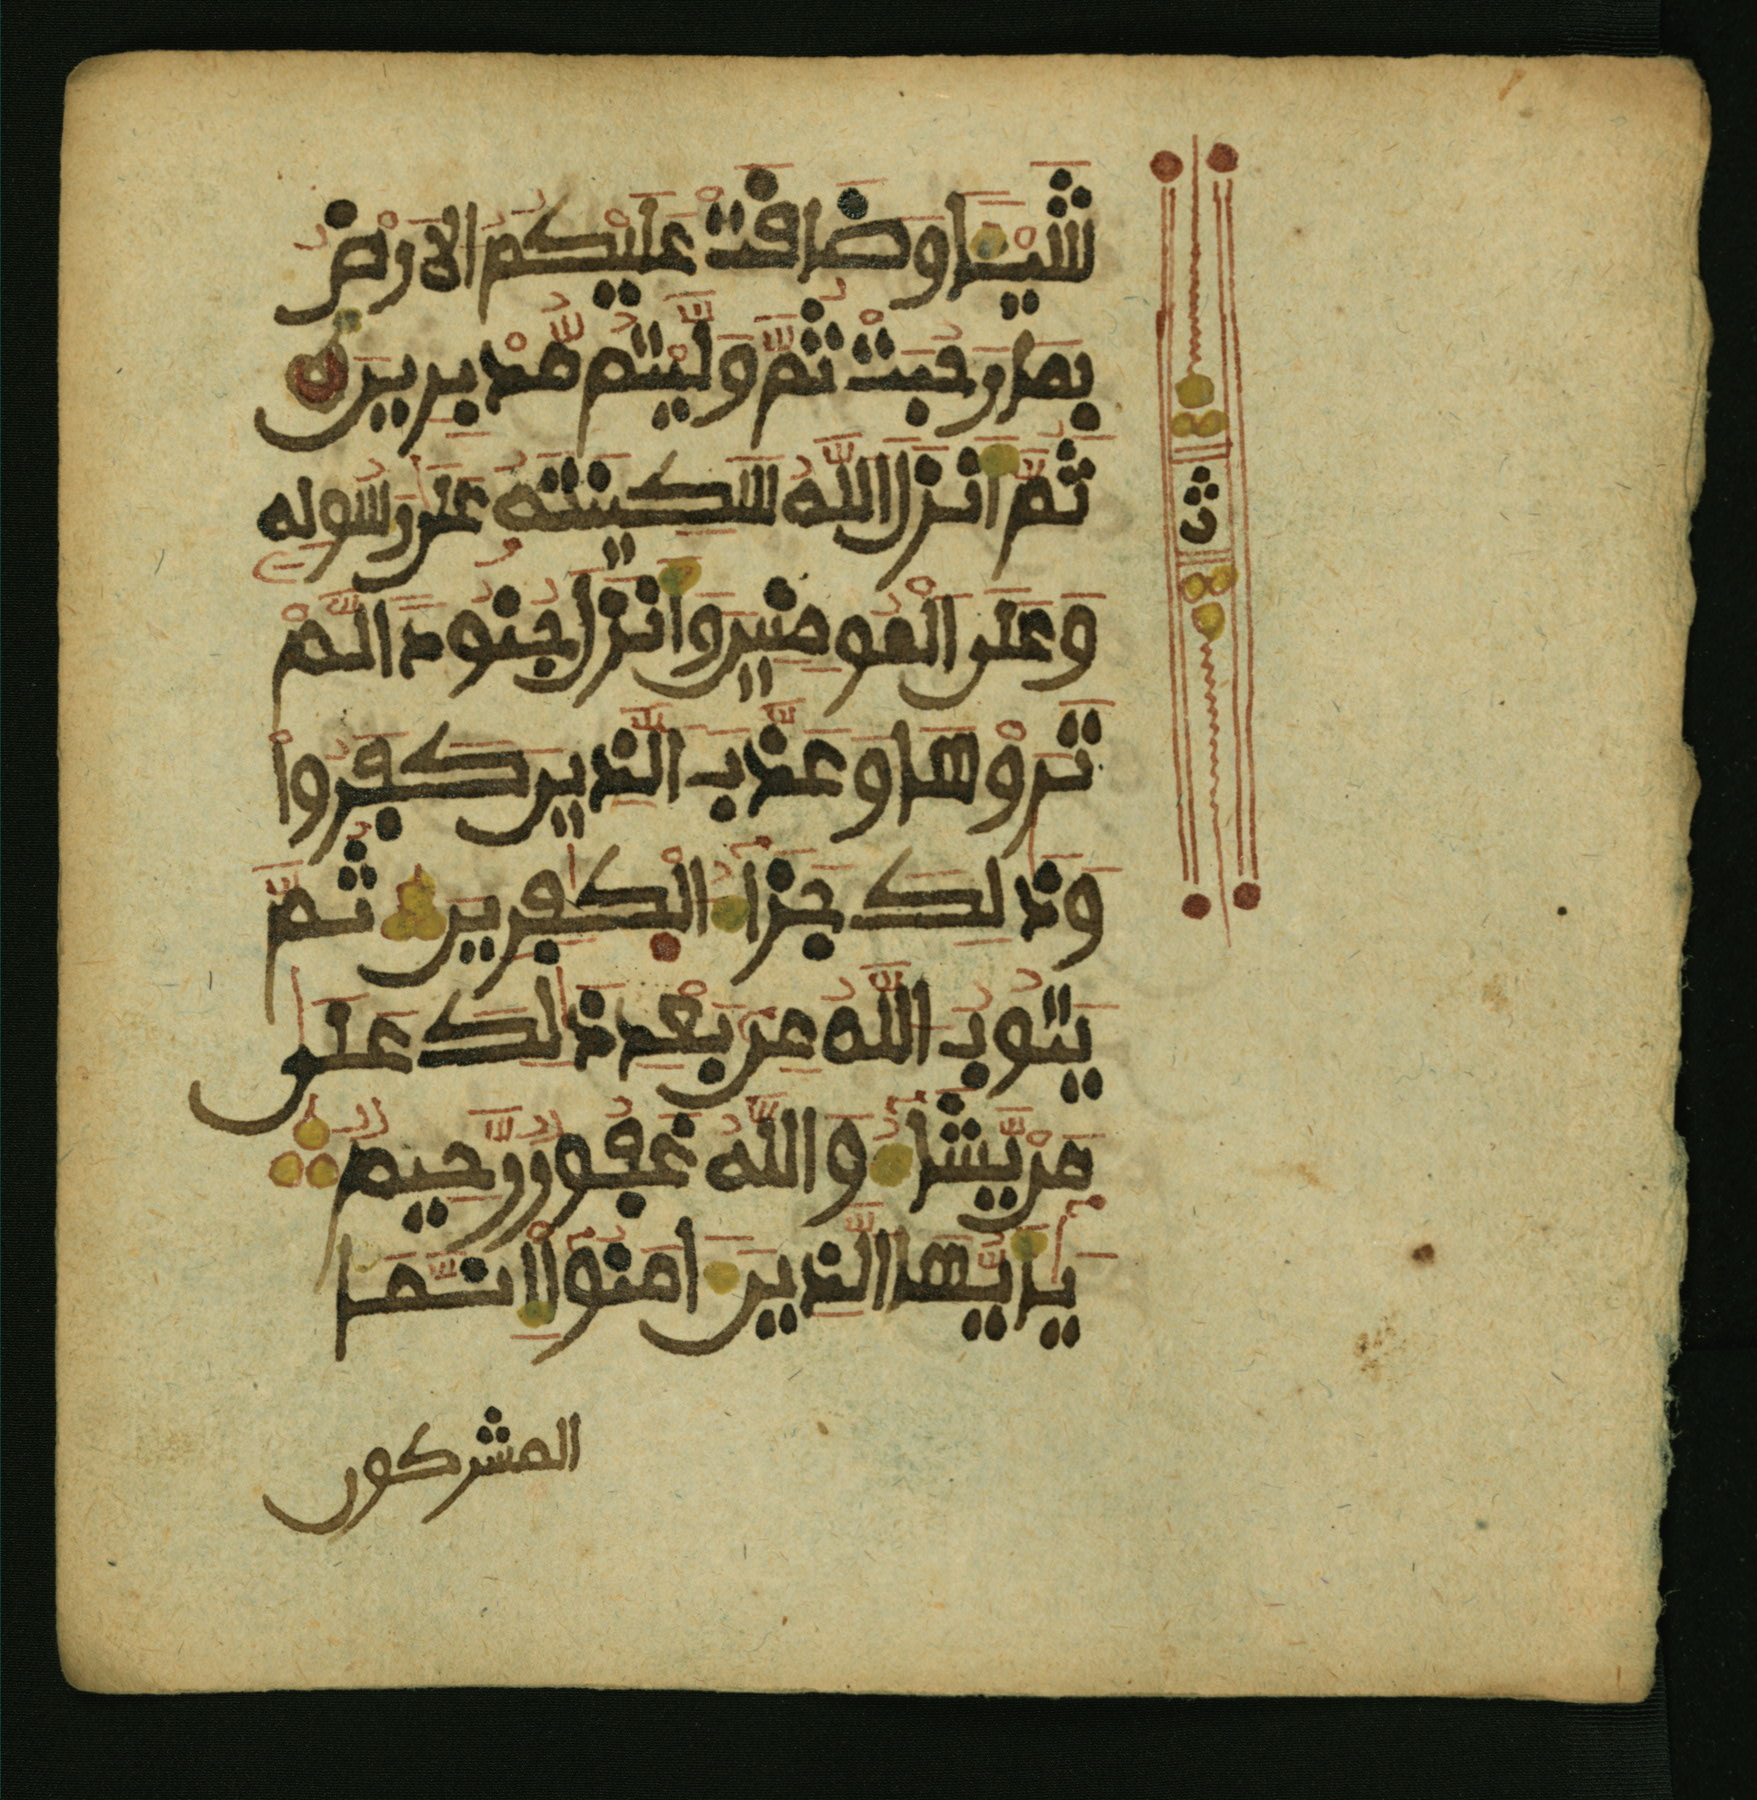 شَيْـًٔا وَضَاقَتْ عَلَيْكُمُ الَارْضُ
بِمَا رَحُبَتْ ثُمَّ وَلَّيْتُم مُّدْبِرِينَ
ث
ثُمَّ أَنزَلَ اللَّهُ سَكِينَتَهُ عَلَىٰ رَسُولِهِ
وَعَلَى الْمُومِنِينَ وَأَنزَلَ جُنُودًا لَّمْ
تَرَوْهَا وَعَذَّبَ الَّذِينَ كَفَرُواْ
وَذَٰلِكَ جَزَآءُ الْكَٰفِرِينَ ثُمَّ
يَتُوبُ اللَّهُ مِنۢ بَعْدِ ذَٰلِكَ عَلَىٰ
مَنْ يَّشَآءُ وَاللَّهُ غَفُورٌ رَّحِيمٌ
يَٰٓأَيُّهَا الَّذِينَ ءَامَنُوٓاْ إِنَّمَا
المشركون